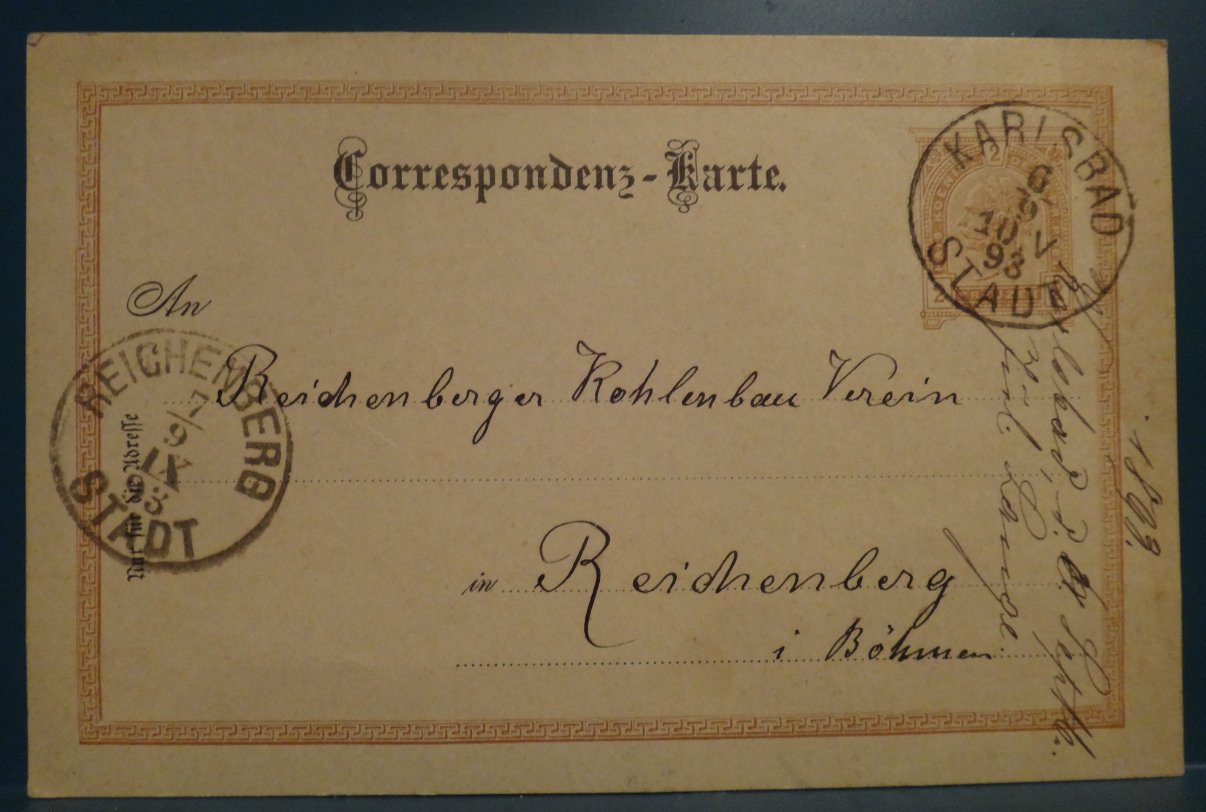 Correspondenz-Karte.
KARLSBAD
6
9
10 V
93
STADT
2
An
Reichenberger Kohlenbau Verein
REICHENBERG
7/9
IX
STADT
Nur für die Adresse
in Reichenberg
i Böhmen.
Karlsbad, d. Septb.
1893.